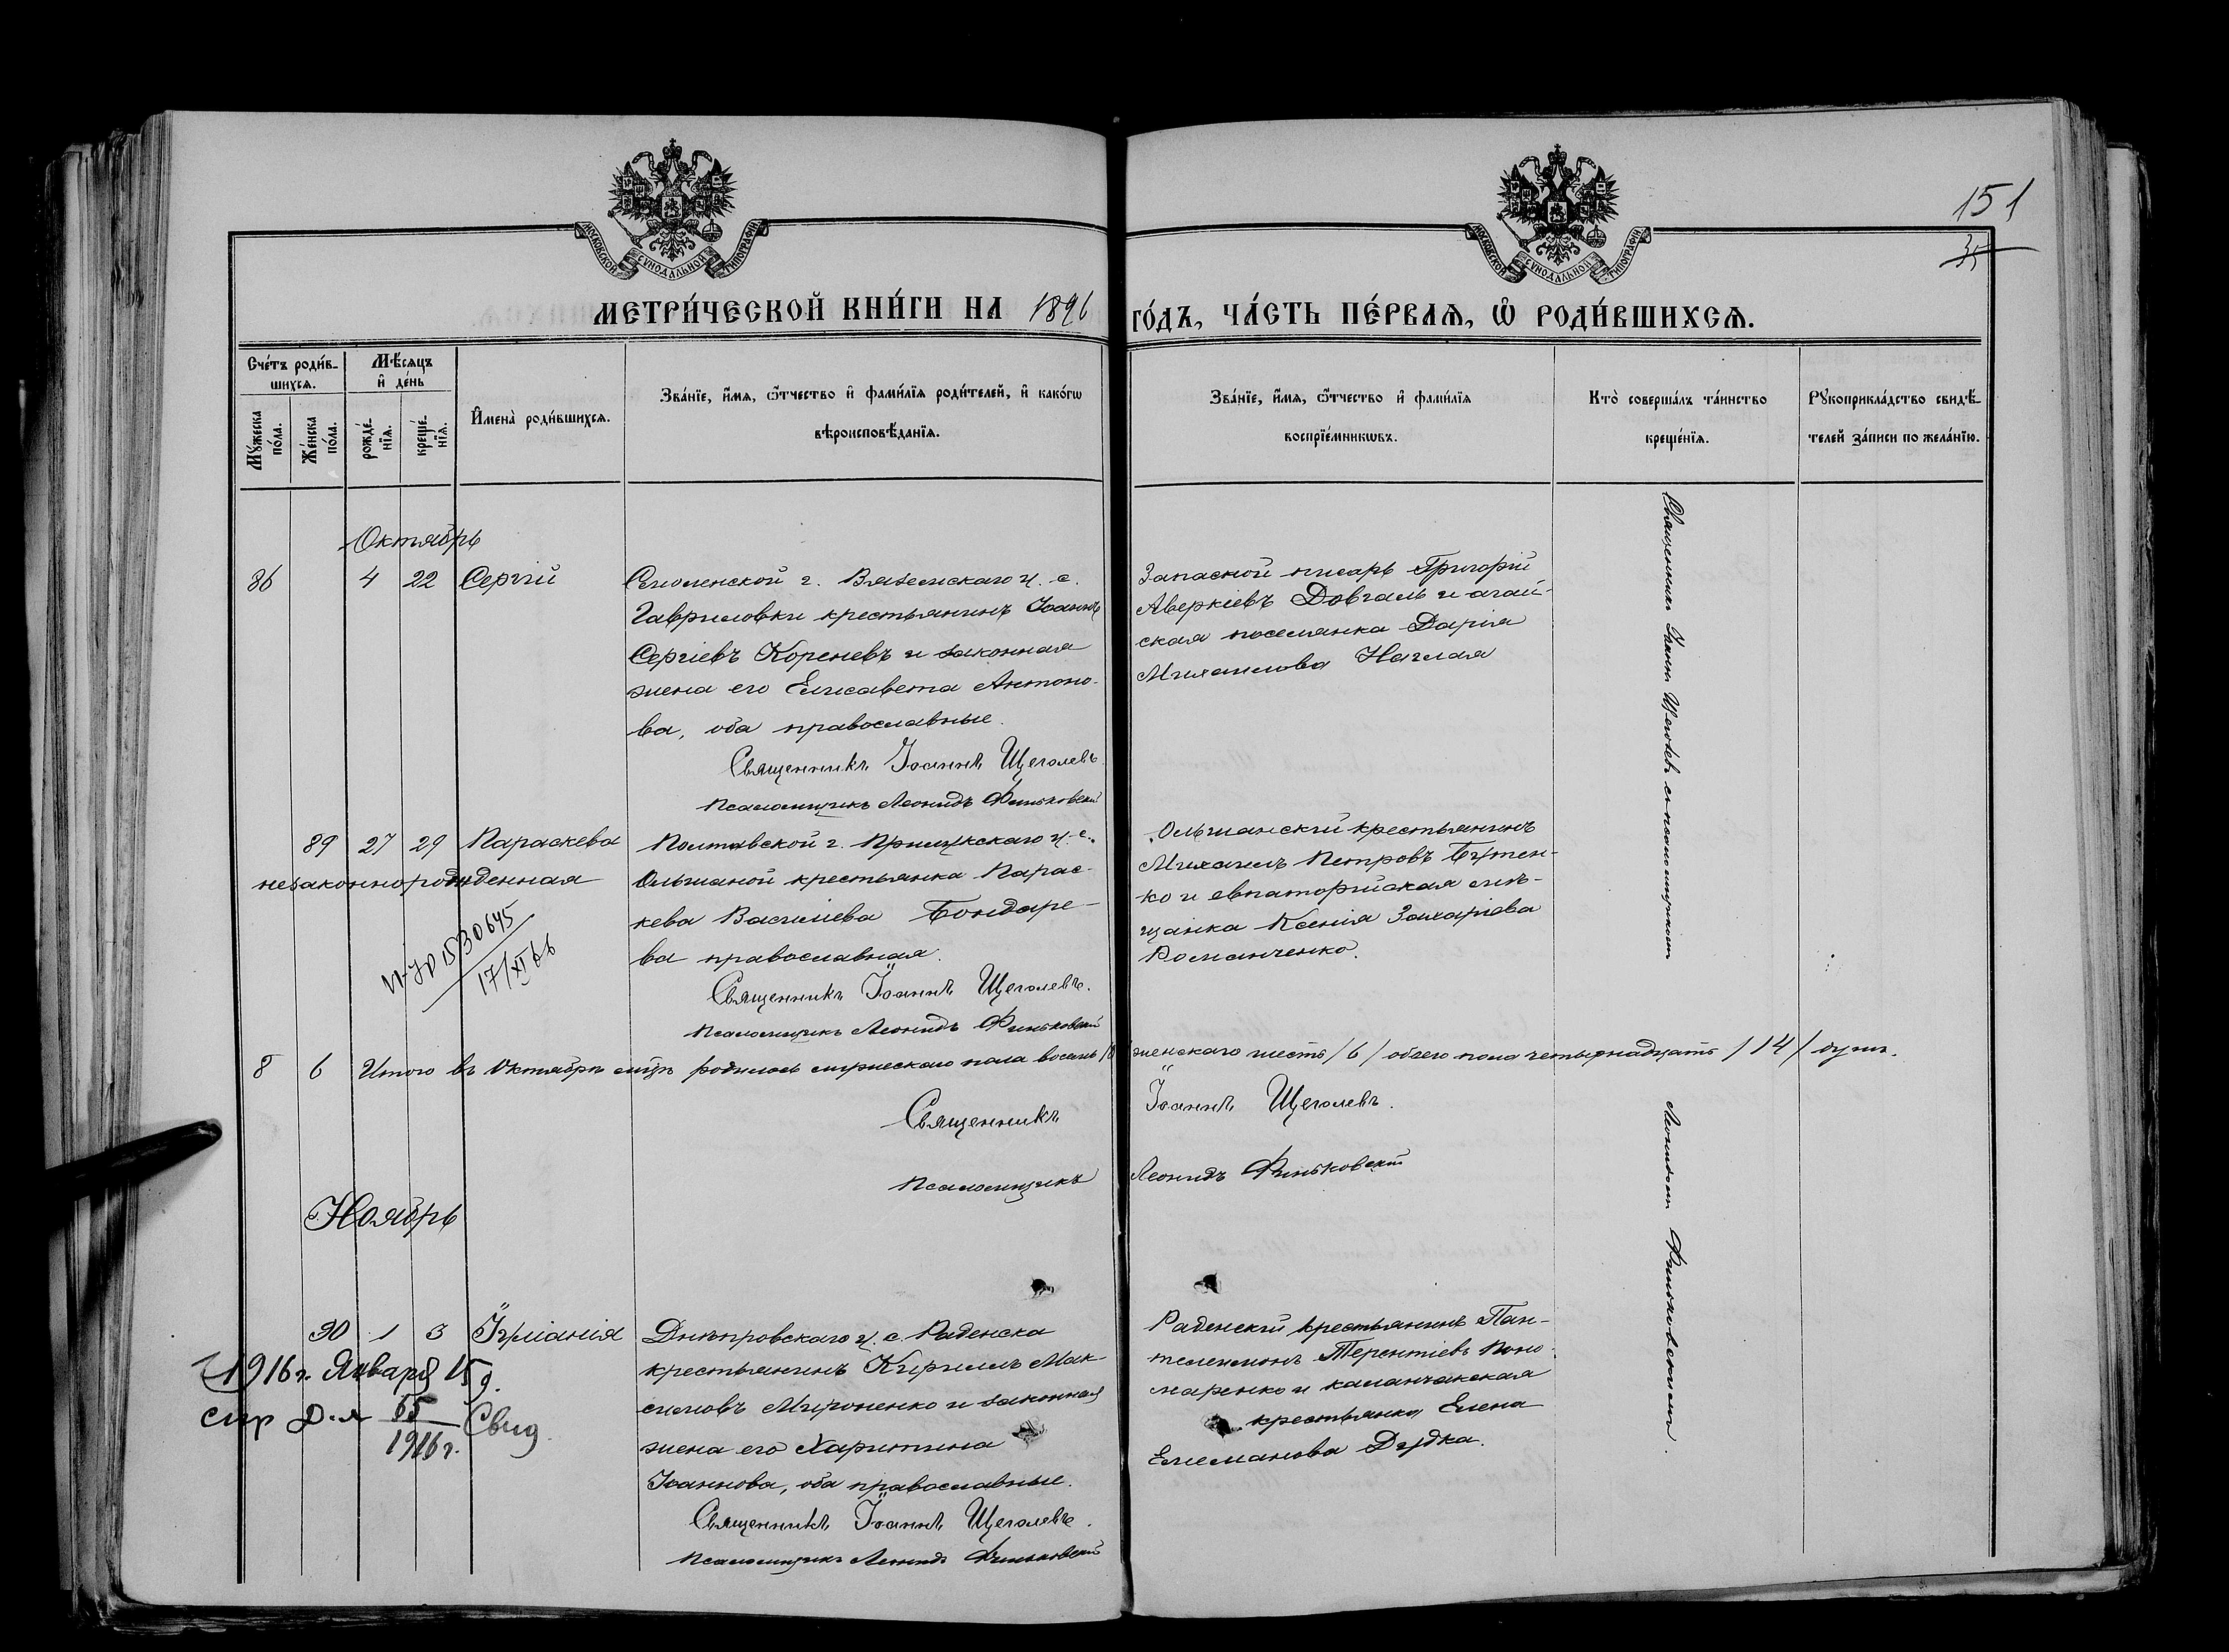 МОСКОВСКОЙ СѴНОДАЛЬНОЙ ТИПОГРАФІИ
МОСКОВСКОЙ СѴНОДАЛЬНОЙ ТИПОГРАФІИ
151
35
МЕТРИ́ЧЕСКОЙ КНИ́ГИ НА 1896 ГО́ДЪ, ЧА́СТЬ ПЕ́РВАѦ, Ѽ РОДИ́ВШИХСѦ.
Сче́тъ роди́в-
шихсѧ.
Мѣ́сѧцъ
и҆ де́нь
Мꙋ́жеска по́ла.
Же́нска по́ла.
рожде́-нїѧ.
креще́-нїѧ.
И҆мена̀ роди́вшихсѧ.
Зва́нїе, и҆́мѧ, ѻ҆́тчество и҆ фами́лїѧ роди́телей, и҆ како́гѡ
вѣроисповѣ́данїѧ.
Зва́нїе, и҆́мѧ, ѻ҆́тчество и҆ фами́лїѧ
воспрїе́мникѡвъ.
Кто̀ соверша́лъ та́инство
креще́нїѧ.
Рꙋкоприкла́дство свидѣ́-
телей за́писи по жела́нїю.
Октябрь
86 4 22 Сергій
Смоленской г. Вяземскаго у. с.
Гавриловки крестьянинъ Іоаннъ
Сергіевъ Кореневъ и законная
жена его Елисавета Антоно-
ва, оба православные.
Священникъ Іоаннъ Щеголевъ
Псаломщикъ Леонидъ Финьковскій
Запасной писарь Григорій
Аверкіевъ Довгаль и агай-
ская поселянка Дарія
Михаилова Наглая
Священникъ Іоаннъ Щеголевъ съ псаломщикомъ
Леонидомъ Финьковскимъ.
89 27 29 Параскева
незаконнорожденная
Полтавской г. Прилукскаго у. с.
Ольшаной крестьянка Парас-
кева Василіева Бондаре-
ва православная.
Священникъ Іоаннъ Щеголевъ.
Псаломщикъ Леонидъ Финьковскій
Ольшанскій крестьянинъ
Михаилъ Петровъ Бутен-
ко и евпаторійская мѣ-
щанка Ксенія Захаріева
Романченко.
17/XI 66
8 6 Итого въ Октябрѣ мѣ̃ц̃ѣ родилось мужескаго пола восемь /8/ женскаго шесть /6/ обоего пола четырнадцать /14/ душъ.
Священникъ Іоаннъ Щеголевъ.
Псаломщикъ Леонидъ Финьковскій
Ноябрь
90 1 3 Іуліанія
1916 г. Января 15 д.
65
1916 г.
Свид.
Днѣпровскаго у. с. Раденска
крестьянинъ Кириллъ Мак-
симовъ Мироненко и законная
жена его Харитина
Іоаннова, оба православные.
Священникъ Іоаннъ Щеголевъ.
Псаломщикъ Леонидъ Финьковскій
Раденскій крестьянинъ Пан-
телеимонъ Терентіевъ Поно-
маренко и каланчакская
крестьянка Елена
Дудка.